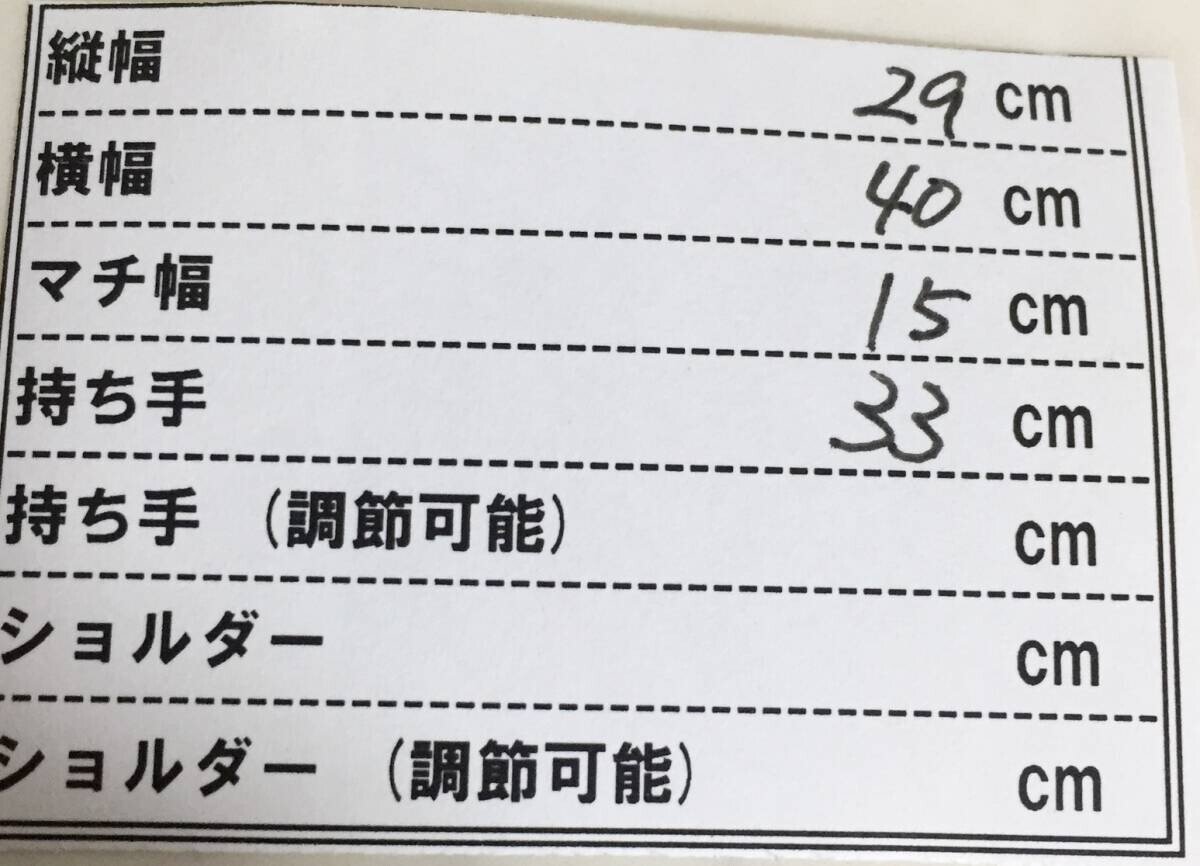 縦幅 29 cm
横幅 40 cm
マチ幅 15 cm
持ち手 33 cm
持ち手 (調節可能) cm
ショルダー cm
ショルダー (調節可能) cm